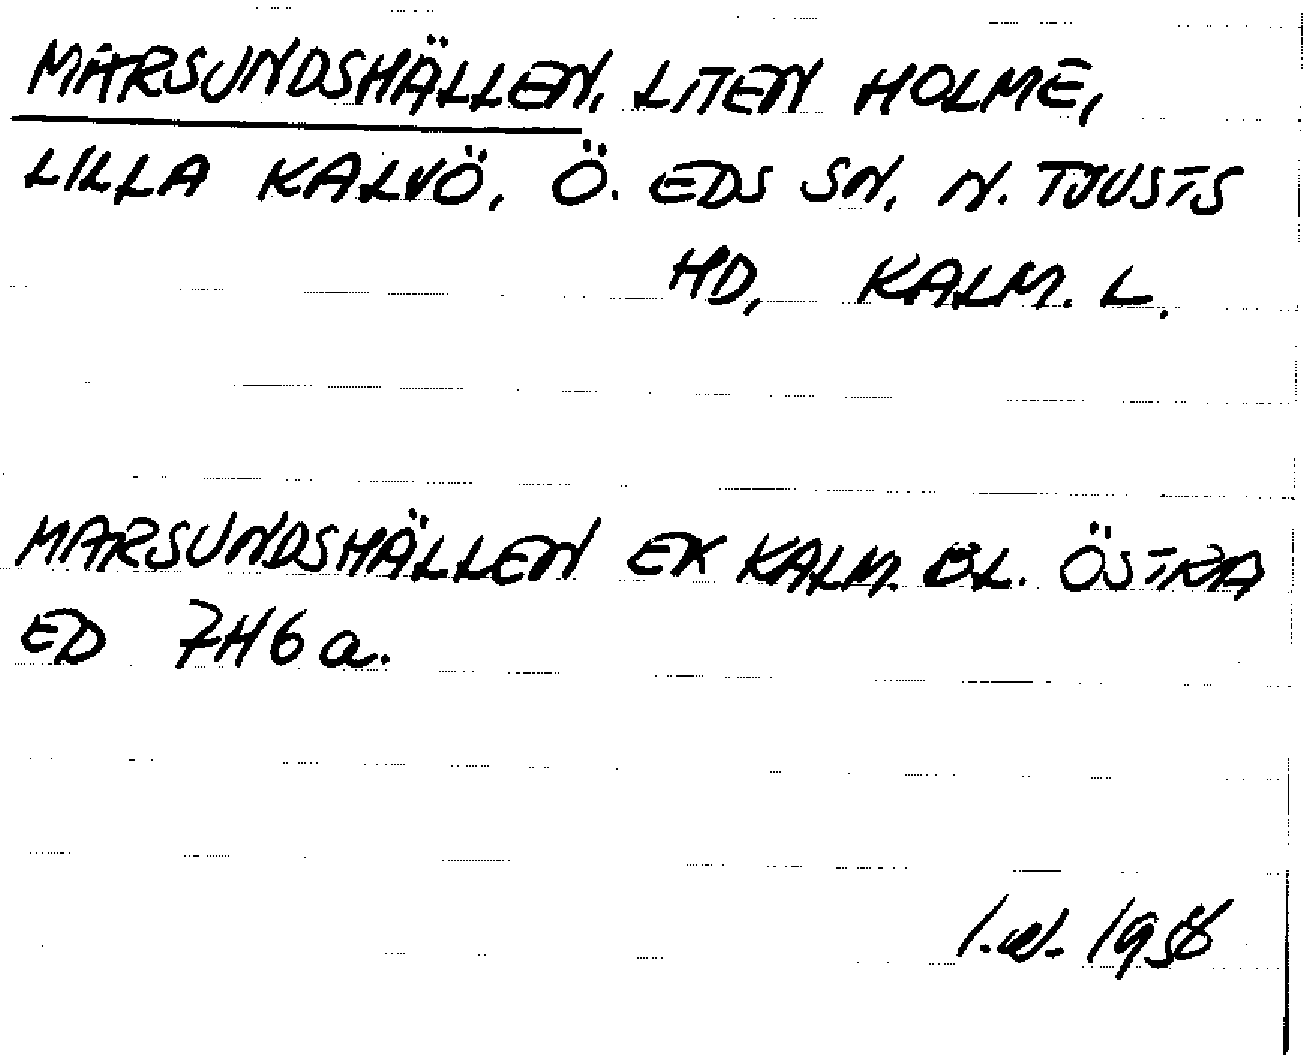 MARSUNDSHÄLLEN, LITEN HOLME,
LILLA KALVÖ, Ö. EDS SN, N. TJUSTS
HD, KALM. L.
MARSUNDSHÄLLEN EK KALM. BL. ÖSTRA
ED 7H6a.
I.W. 1958